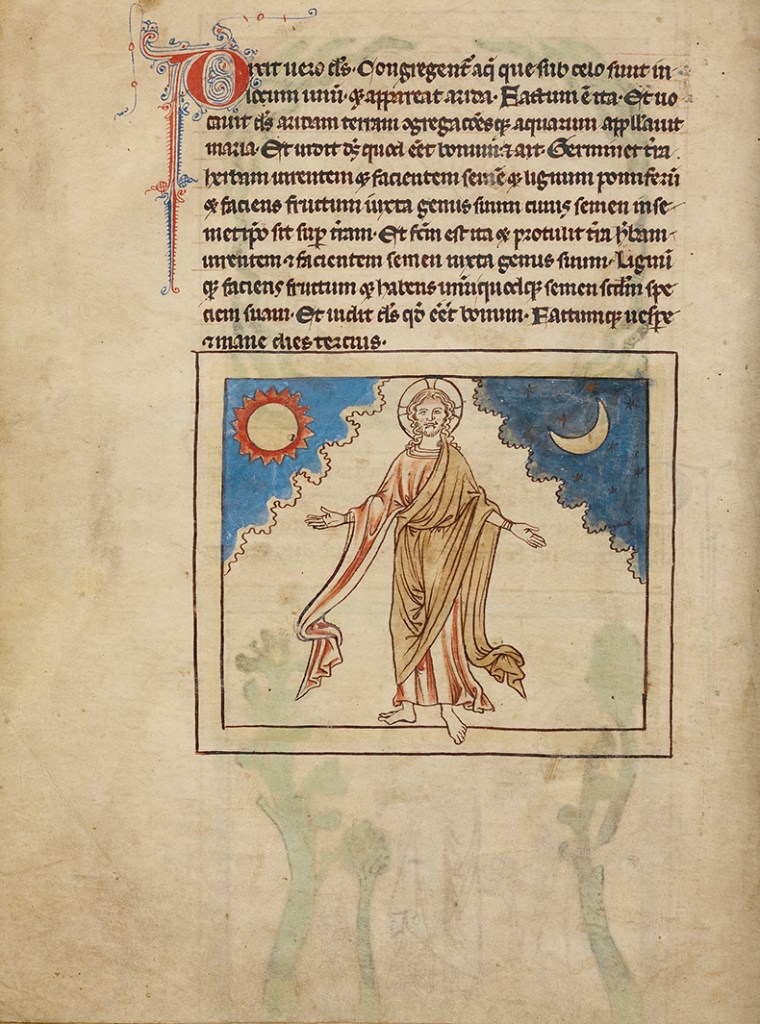 Dixit uero ds̄. Congregent᷑ aq̄ que sub celo sunt in
locum unū. ⁊ appareat arida. Factum ē ita. Et uo
cauit ds̄ aridam terram ↄgregac̄ōesq; aquarum app̄llauit
maria. Et uidit ds̄ quod eēt bonum ⁊ ait. Germinet t̄ra
herbam uirentem ⁊ facientem semē ⁊ lignum pomiferū
⁊ faciens fructum iuxta genus suum cuius semen in se
met ip̄o sit sup̄ t̄ram. Et fc̄m est ita ⁊ protulit t̄ra h̄bam
uirentem ⁊ facientem semen iuxta genus suum. Lignū
q; faciens fructum ⁊ habens unūquodq; semen scd̄m spe
ciem suam. Et uidit ds̄ qd̄ eēt bonum. Factumq; uesp̄e
⁊ mane dies tercius.